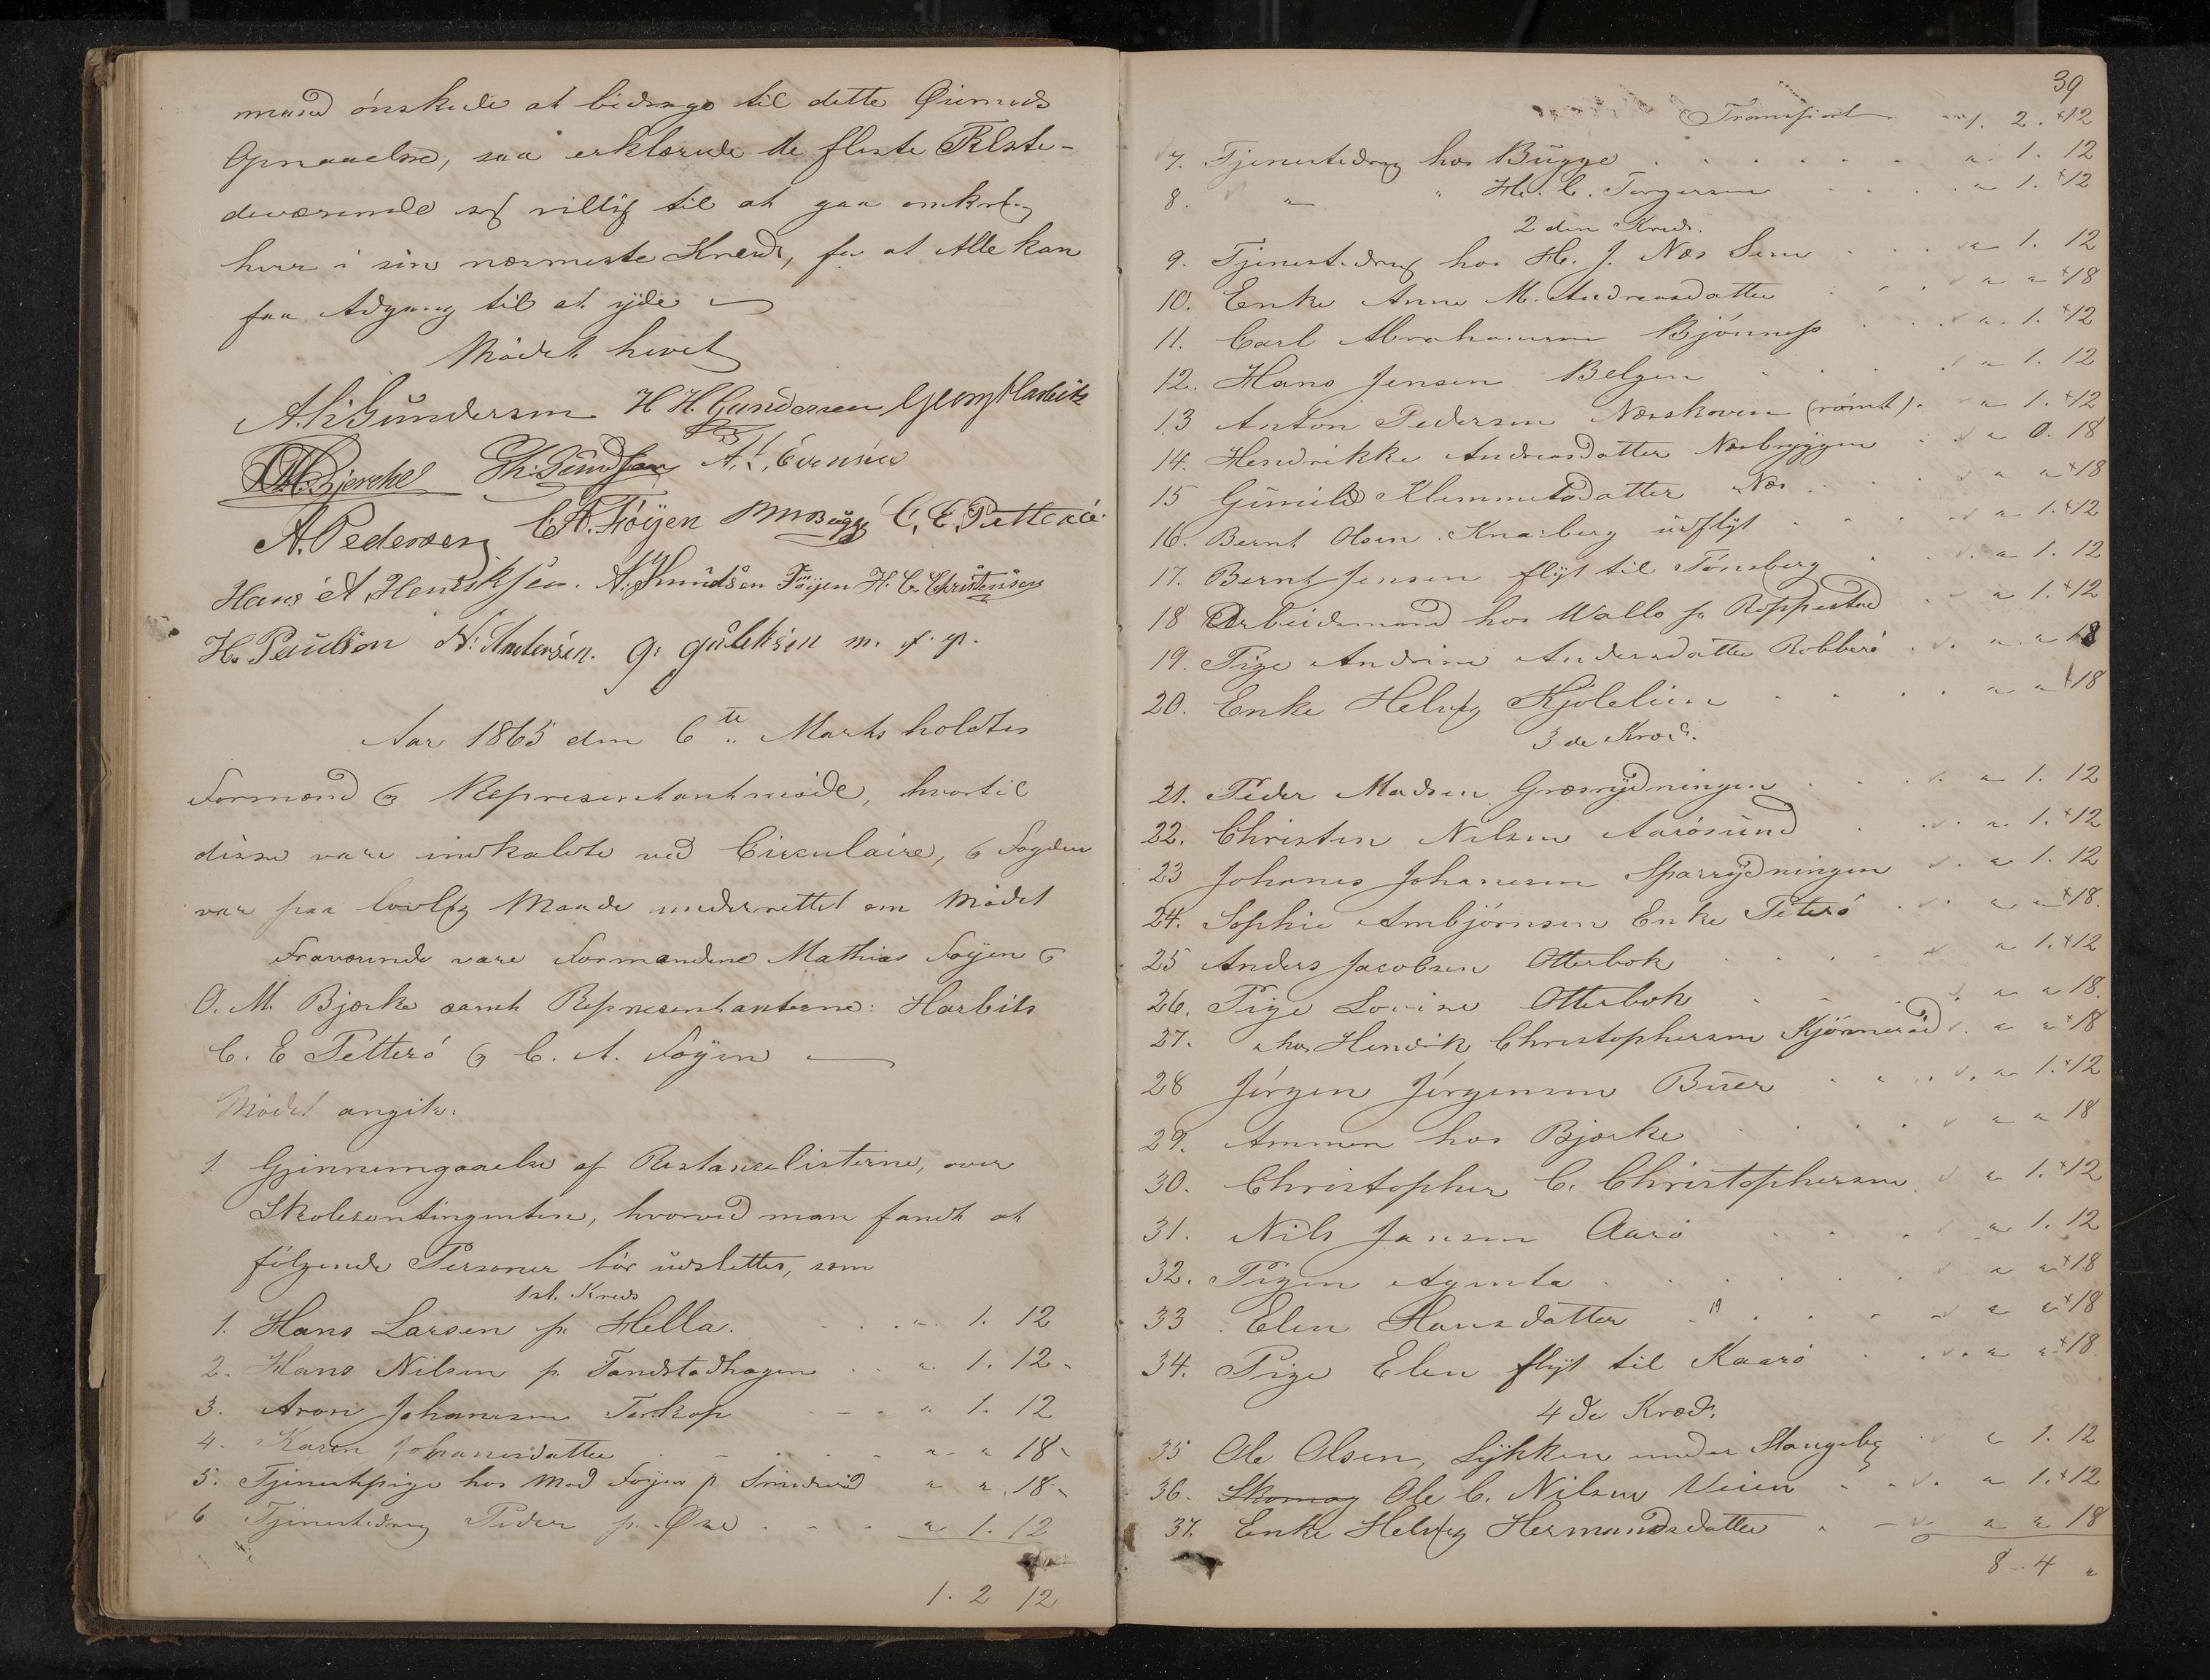 mand ønskede at bidrage til dette Øiemeds
Opnaaelse, saa erklærede de fleste Tilste-
deværende sig villig til at gaa omkring
hver i sin nærmeste Kreds, for at Alle kan
faa Adgang til at yde
Mødet hevet
A. H. Gundersen H H. Gundersen Georg Harbitz
O.M. Bjerche A. Evensen
A. Pedersen C. A. Föijen M Bugge C. E. Petterøe
Hans A. Hendriksen. A. Amundsen Föijen H. C. Christensen
H. Paulson N. Andersen. G. Gulliksen m. f. p.
Aar 1865 den 6te Marts holdtes
Formænd og Representantmøde, hvortil
disse vare indkaldte ved Circulaire, og Fogden
var paa lovlig Maade underrettet om Mødet
Fraværende vare Formændene Mathias Føyen og
O. M. Bjerke samt Representanterne: Harbits
C. E Petterø og C. A. Føyen
Mødet angik:
1. Gjennemgaaelse af Restanselisterne, over
Skolecontingenten, hvorved man fandt at
følgende Personer bør udslettes, som
1st. Kreds
1. Hans Larsen p. Hella. " 1. 12
2. Hans Nilsen p. Tandstadhagen " 1. 12
3. Aron Johannesen Torkop " 1. 12
4. Karen Johannesdatter " " 18
5. Tjenestpige hos Mad Føyen p. " " 18
6 Tjenestedreng Peder p. Øre " 1. 12
1. 2 12
39
Transport 1. 2. 12
7. Tjenestedreng hos Bugge " 1. 12
8. " " H. C. Torgersen " 1. 12
2 den Kreds.
9. Tjenestedreng hos H. J. Næs Sem " 1. 12
10. Enke Anne M. Andreasdatter " " 18
11. Carl Abrahamsen Bjønness " 1. 12
12. Hans Jensen Belgen " 1. 12
13 Anton Pedersen Næsskoven (rømt). " 1. 12
14. Hendrikke Andreasdatter Næsbryggen " 0. 18
15 Gunild Klemmetsdatter Næs " " 18
16. Bernt Olsen Knarberg udflyt " 1. 12
17. Bernt Jensen flyt til Tønsberg " 1. 12
18 Arbeidsmand hos Wallø p. Roppestad " 1. 12
19. Pige Andrine Andersdatter Robberø " " 18
20. Enke Helvig Kjølelien " " 18
3 de Kreds.
21. Peder Madsen Græsrydningen " 1. 12
22. Christen Nilsen Aarøsund " 1. 12
23 Johannes Johannesen Sparrydningen " 1. 12
24. Sophie Ambjørnsen Enke Peterø " " 18.
25 Anders Jacobsen Otterbek " 1. 12
26. Pige Lovise Otterbek " " 18.
27. " hos Hendrik Christophersen Kjønnerød " " 18
28 Jørgen Jørgensen Buer " 1. 12
29. Ammen hos Bjærke " " 18
30. Christopher C. Christophersen " 1. 12
31. Nils Jansen Aarø " 1. 12
32. Pigen Agnete " " 18
33 Elen Hansdatter " " 18
34. Pige Elen flyt til Kaarø " " 18
4 de Kreds.
35 Ole Olsen, Lykken under Stangeby " 1. 12
36. Skomag Ole C. Nilsen Veien " 1. 12
37. Enke Helvig Hermundsdatter " " 18
8 4 "